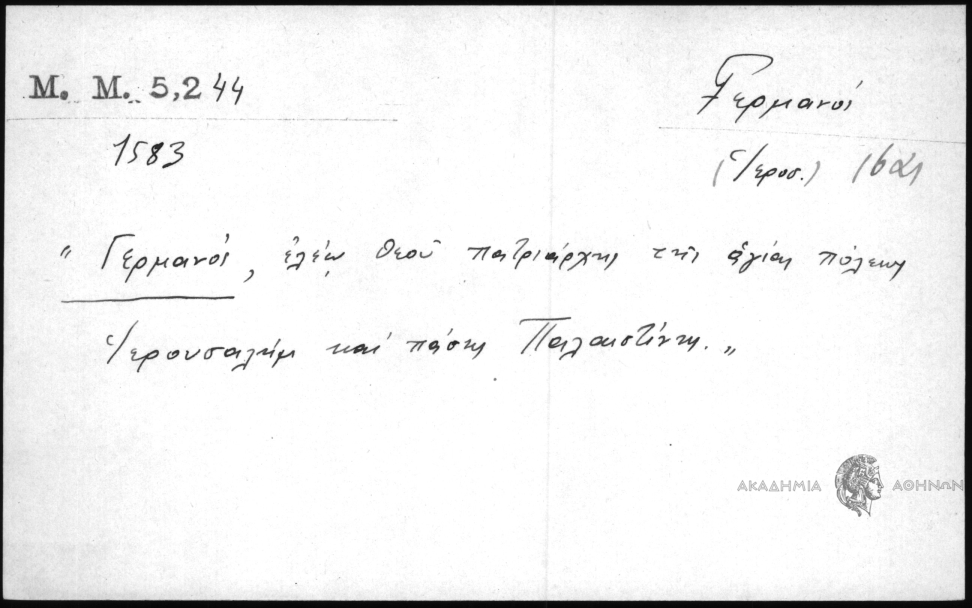 Μ. Μ. 5,244
Γερμανός
1583
(Ἱερουσ.) 1621
„ Γερμανός, ἐλέῳ θεοῦ πατριάρχης τῆς ἁγίας πόλεως
Ἱερουσαλὴμ καὶ πάσης Παλαιστίνης. „
ΑΚΑΔΗΜΙΑ ΑΘΗΝΩΝ